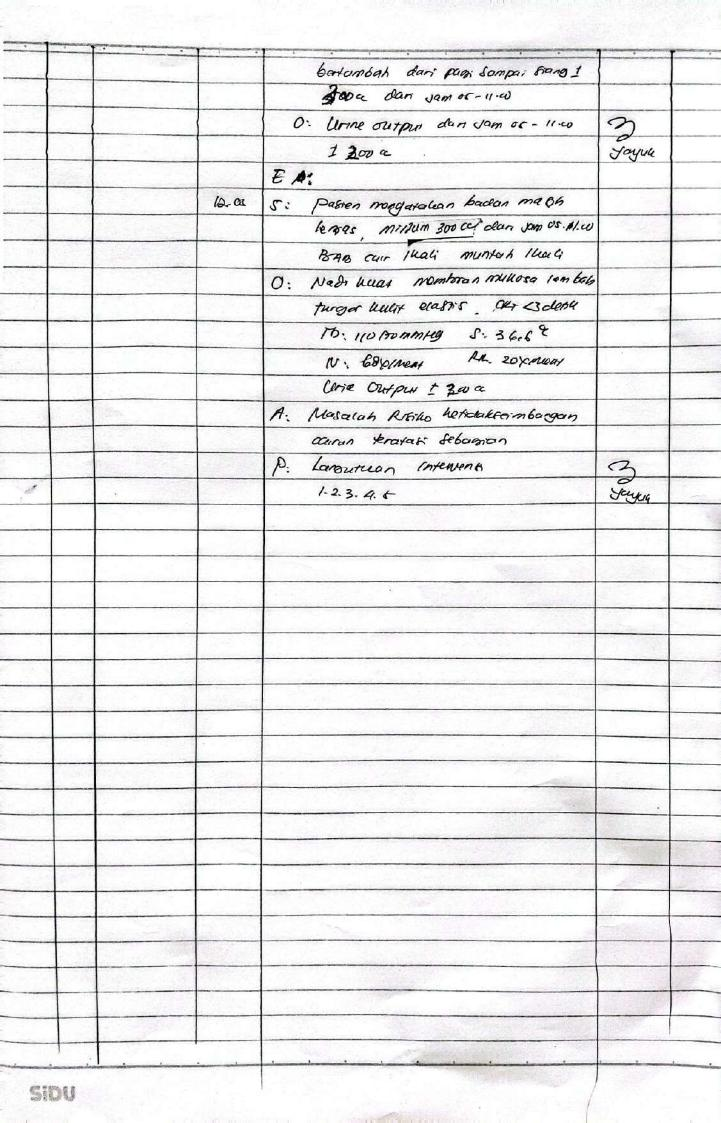 bertambah dari pagi sampai siang ±
300cc dari jam 05-11.00
O: Urine output dari jam 05-11.00
± 200 cc
Yayuk
E
12.00 S: Pasien mengatakan badan masih
lemas, minum 300 cc dari jam 05.11.00
BAB cair 1kali muntah 1kali
O: Nadi kuat membran mukosa lembab
turgor kulit elastis. CRT <3detik
TD: 110/70mmHg S: 36.6 °C
N: 68x/menit RR. 20x/menit
Urine Output ± 200 cc
A: Masalah Risiko ketidakseimbangan
cairan teratasi sebagian
P: Lanjutkan intervensi
1.2.3.4.5
Yayuk
SiDU